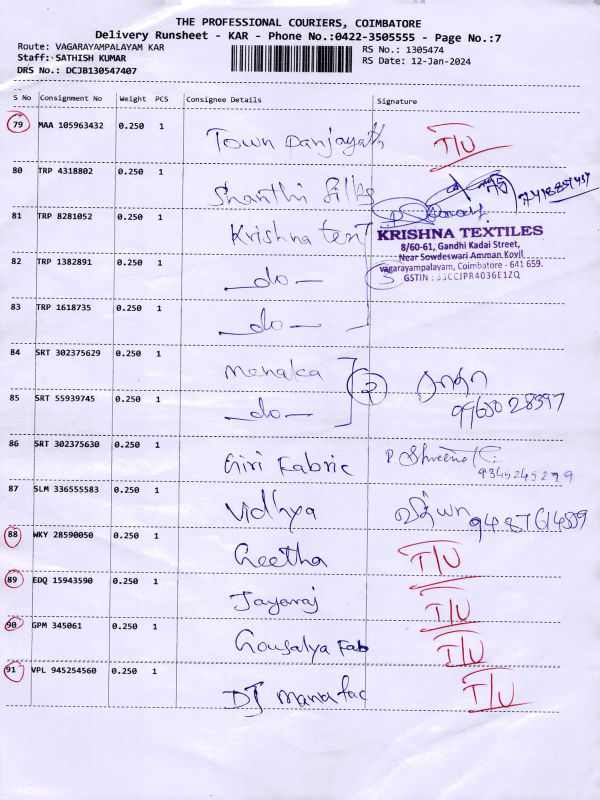 THE PROFESSIONAL COURIERS, COIMBATORE
Delivery Runsheet - KAR - Phone No.:0422-3505555 - Page No.:7
Route: VAGARAYAMPALAYAM KAR
RS No.: 1305474
Staff: SATHISH KUMAR
RS Date: 12-Jan-2024
DRS No.: DCJB130547407
S No Consignment No Weight PCS Consignee Details Signature
79 MAA 105963432 0.250 1 Town Panjayath T/U
80 TRP 4318802 0.250 1 Shanthi Silks
81 TRP 8281052 0.250 1 Krishna text
KRISHNA TEXTILES
8/60-61, Gandhi Kadai Street,
Near Sowdeswari Amman Kovil
vagarayampalayam, Coimbatore - 641 659.
GSTIN : 33CCJPR4036E1ZQ
82 TRP 1382891 0.250 1 — do — 3
83 TRP 1618735 0.250 1 — do —
84 SRT 302375629 0.250 1 Menaka 2
85 SRT 55939745 0.250 1 — do — 9965028397
86 SRT 302375630 0.250 1 Giri Fabric 9345245279
87 SLM 336555583 0.250 1 Vidhya வித்யா 9487614889
88 WKY 28590050 0.250 1 Geetha T/U
89 EDQ 15943590 0.250 1 Jayaraj T/U
90 GPM 345061 0.250 1 Gousalya Fab T/U
91 VPL 945254560 0.250 1 DJ Manafac T/U